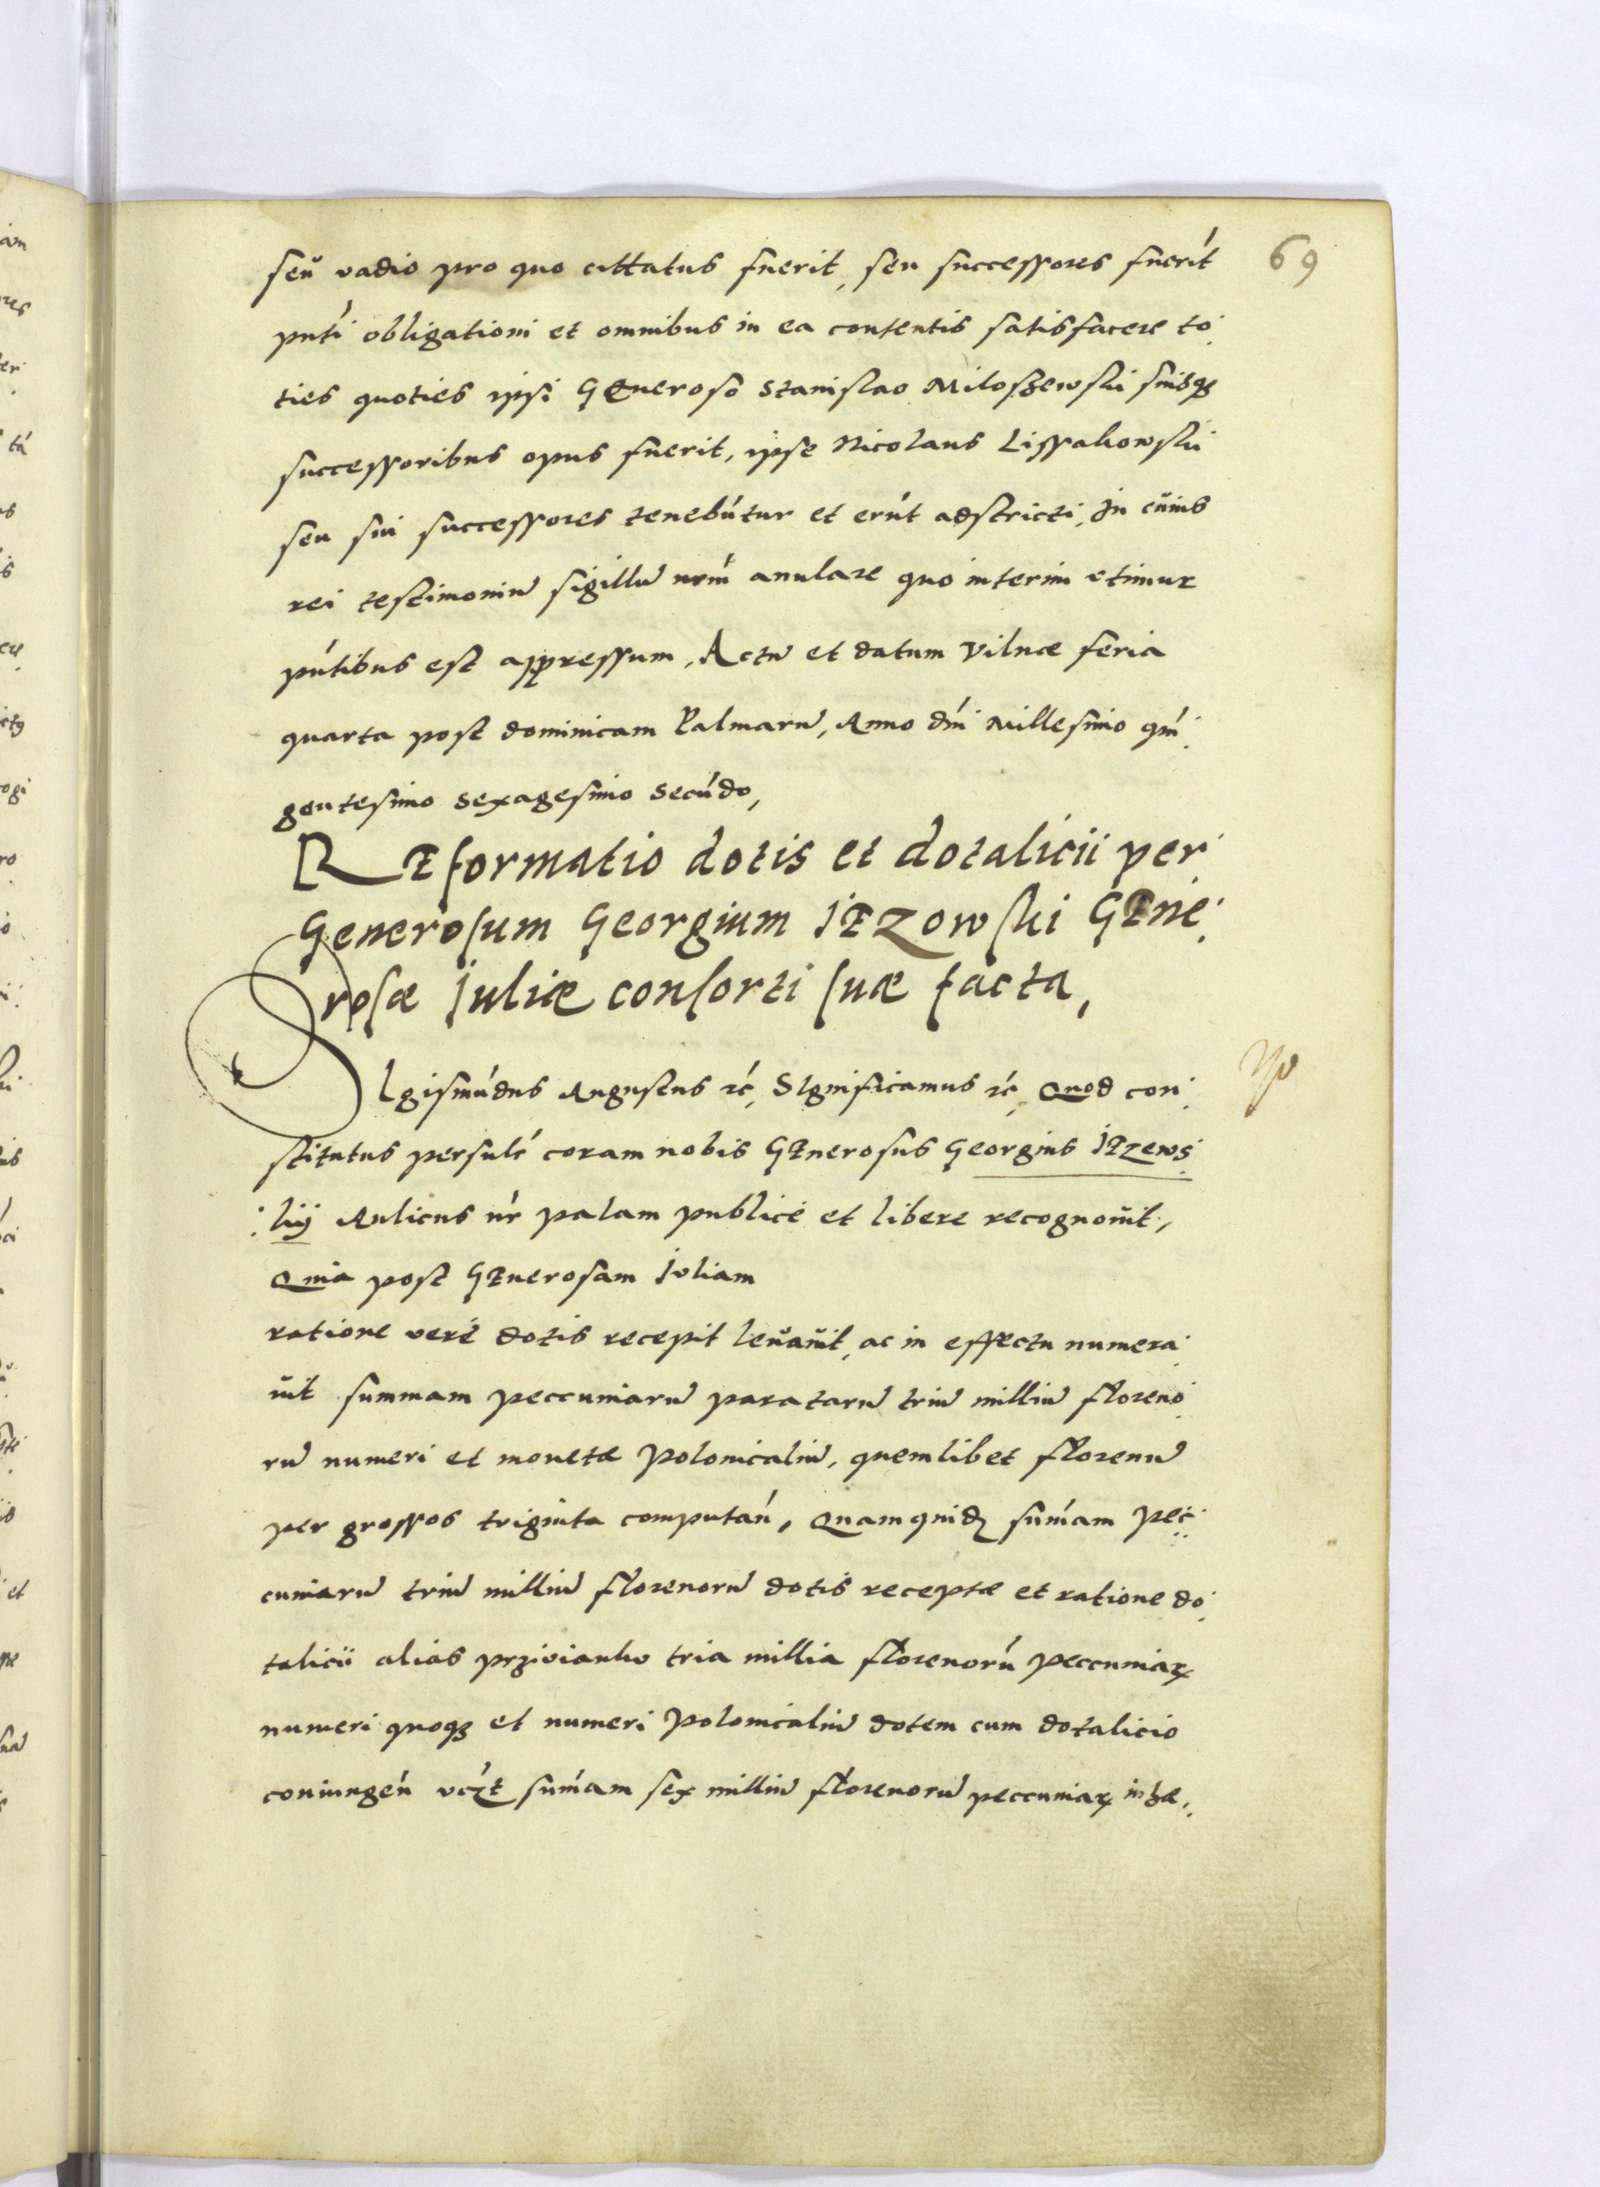 69
seu vadio pro quo cittatus fuerit, seu successores fuerīt
pn̄ti obligationi et omnibus in ea contentis satisfacere to
ties quoties ipsi Generoso Stanislao Miloszewski suisq3
successoribus opus fuerit, ipse Nicolaus Lissakowski
seu sui successores tenebūtur et erūt adstricti, In cuius
rei testimoniū sigillū nrm̄ anulare quo interim utimur
pn̄tibus est appressum, Actū et datum Vilnæ feria
quarta post dominicam Palmarū, Anno dn̄i Millesimo qui
gentesimo sexagesimo secūdo,
REformatio dotis et dotalicii per
Generosum Georgium IEzowski GEne
rosæ Iuliæ consorti suæ facta,
SIgismūdus Augustus etc̄, SIgnificamus etc̄, Quod con
stitutus persolr̄ coram nobis GEnerosus Georgius IEzews
kij Aulicus nr̄ palam publicé et libere recognouit,
Quia post GEnerosam Iuliam
ratione veré dotis recepit leuauit, ac in effectu numera
uit summam peccuniarū paratarū triū milliū floreno
rū numeri et monetæ Polonicaliū, quemlibet florenū
per grossos triginta computan̄, Quamquidē sum̄am pec
cuniarū triū milliū florenorū dotis receptæ et ratione do
talicii alias przivianku tria millia florenorū peccuniarꝝ
numeri quoq3 et numeri Polonicaliū dotem cum dotalicio
coniungen̄ vczt̄ sum̄am sex milliū florenorū peccuniarꝝ in hæ